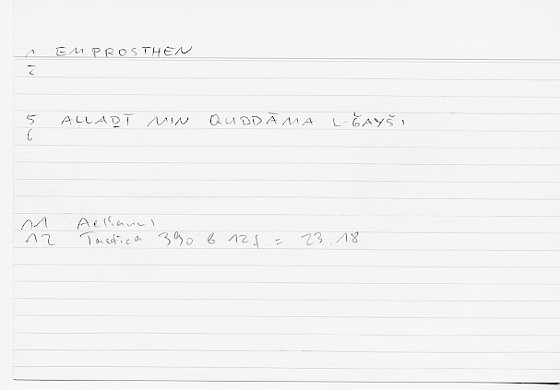 1 EMPROSTHEN
2
5 ALLAḎĪ MIN QUDDĀMA L-ǦAYŠI
6
11 Aeliani
12 Tactica 390 b 12f = 23.18